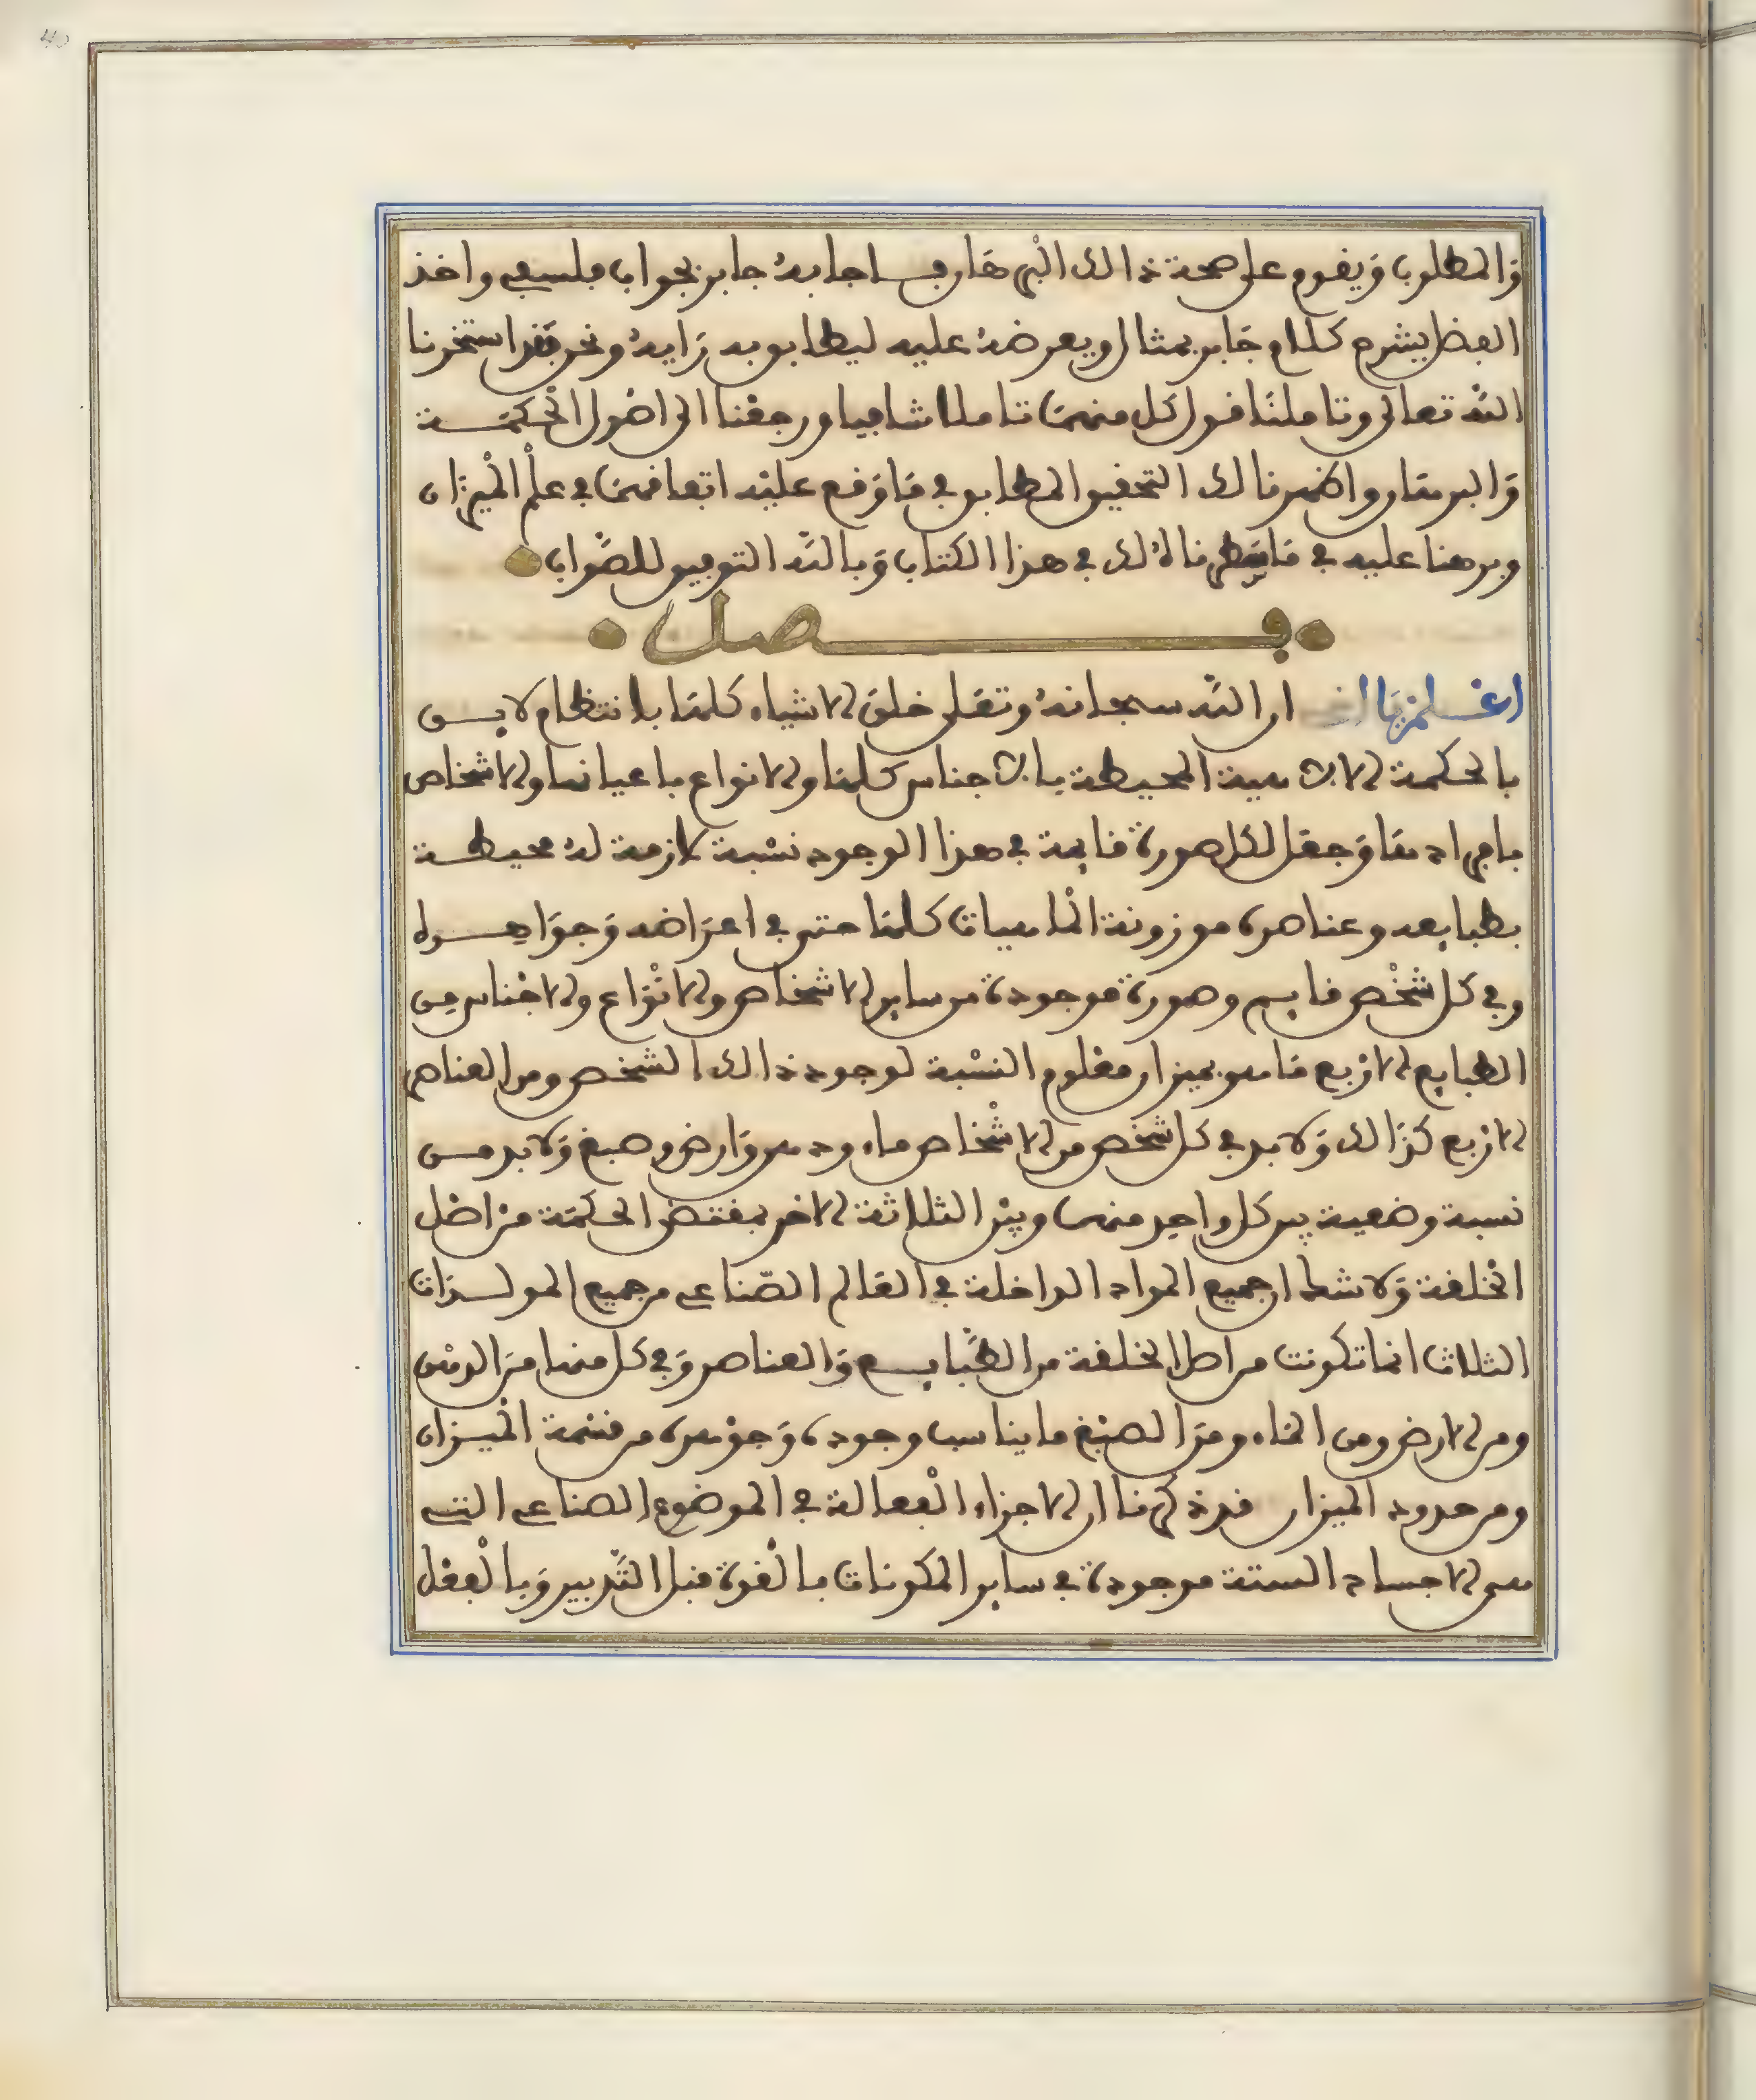 40
والمطلوب ويقوم على صحة ذالك البرهان فاجابه جابر بجواب فلسفي واخذ
الفضل يشرح كلام جابر بمثال ويعرضه عليه ليطابق به رايه ونحن فقد استخرنا
الله تعالى وتاملنا قول كل منهما تاملا شافيا ورجعنا الى اصول الحكمة
والبرهان واظهرنا لك التحقيق المطابق في ما وقع عليه اتفاقهما في علم الميزان
وبرهنا عليه في ما سطرناه لك في هذا الكتاب وبالله التوفيق للصواب
فصل
اعلم يا اخي ان الله سبحانه وتعلى خلق الاشياء كلها بانتظام لايق
بالحكمة الالاهية المحيطة بالاجناس كلها والانواع باعيانها والاشخاص
بافرادها وجعل لكل صورة قايمة في هذا الوجود نسبة لازمة له محيطة
بطبايعه وعناصره موزونة الماهيات كلها حتى في اعراضه وجواهره
وفي كل شخص قايم وصورة موجودة من ساير الاشخاص والانواع والاجناس من
الطبايع الاربع ما هو بميزان معلوم النسبة لوجود ذالك الشخص ومن العناصر
الاربع كذالك ولا بد في كل شخص من الاشخاص ماء ودهن وارض وصبغ ولا بد من
نسبة وضعية بين كل واحد منهن وبين الثلاثة الاخر بمقتضى الحكمة من اصل
الخلقة ولا شك ان جميع المواد الداخلة في العالم الصناعي من جميع المولدات
الثلاث انما تكونت من اصل الخلقة من الطبايع والعناصر وفي كل منها من الدهن
ومن الارض ومن الماء ومن الصبغ ما يناسب وجوده وجوهره من قسمة الميزان
ومن حدود الميزان قد ذكرنا ان الاجزاء الفعالة في الموضوع الصناعي التي
هي الاجساد الستة موجودة في ساير المكونات بالقوة قبل التدبير وبالفعل